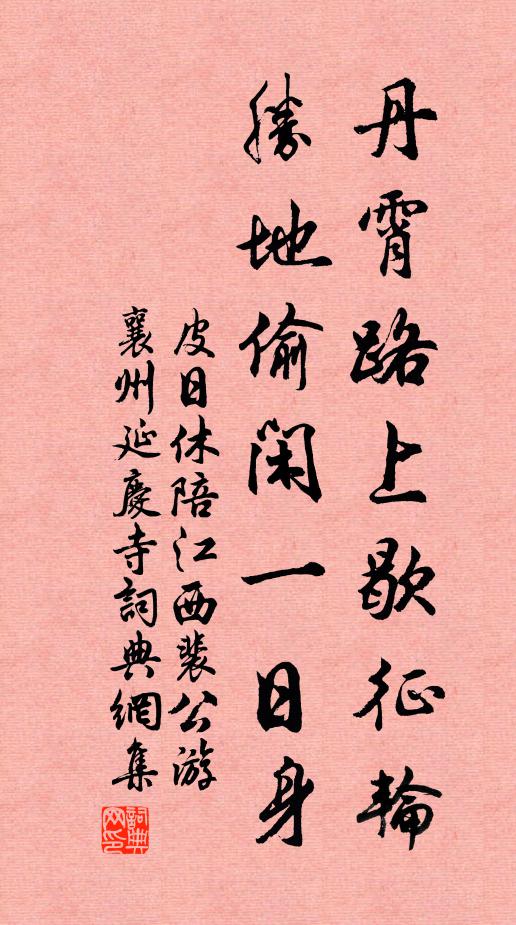 丹霄路上歇征輪
勝地偷閑一日身
皮日休陪江西裴公游
襄州延慶寺詞典網集
詞典网印